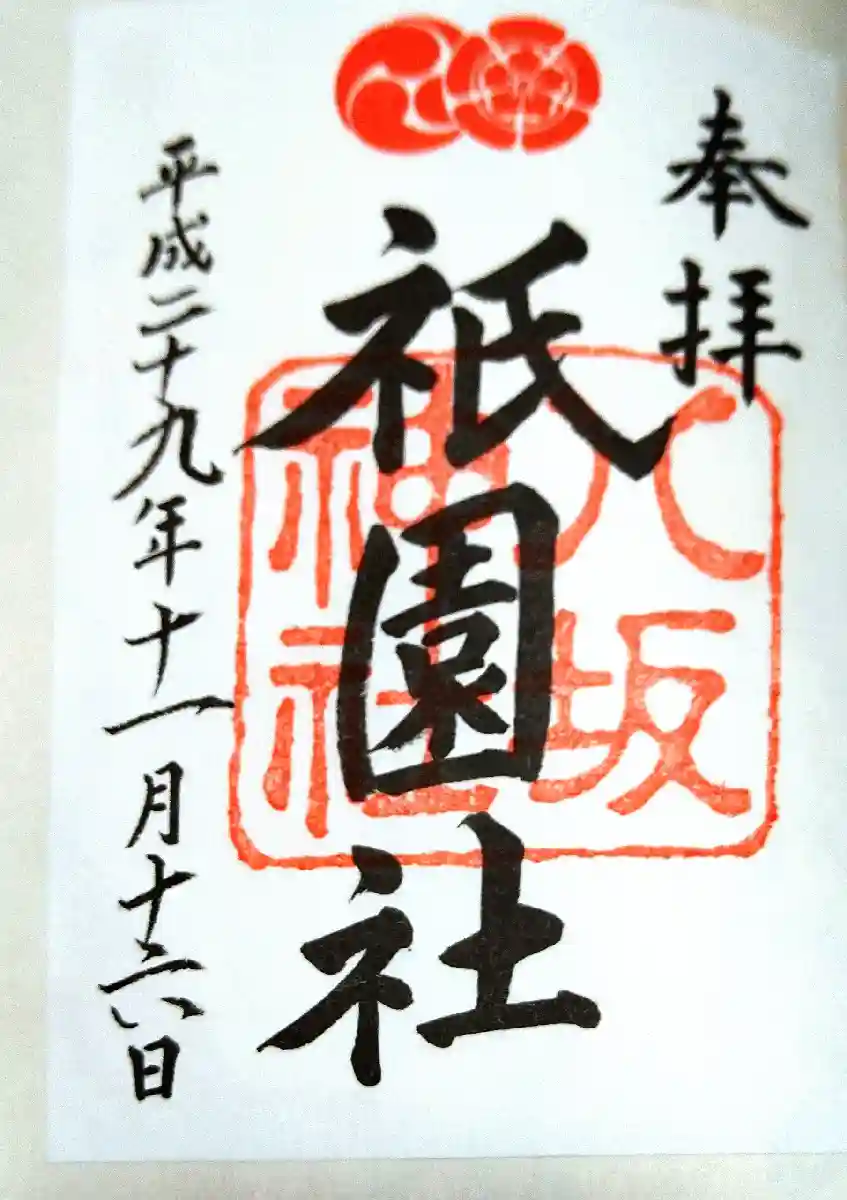 奉拝
祇園社
八坂
神社
平成二十九年十一月十六日